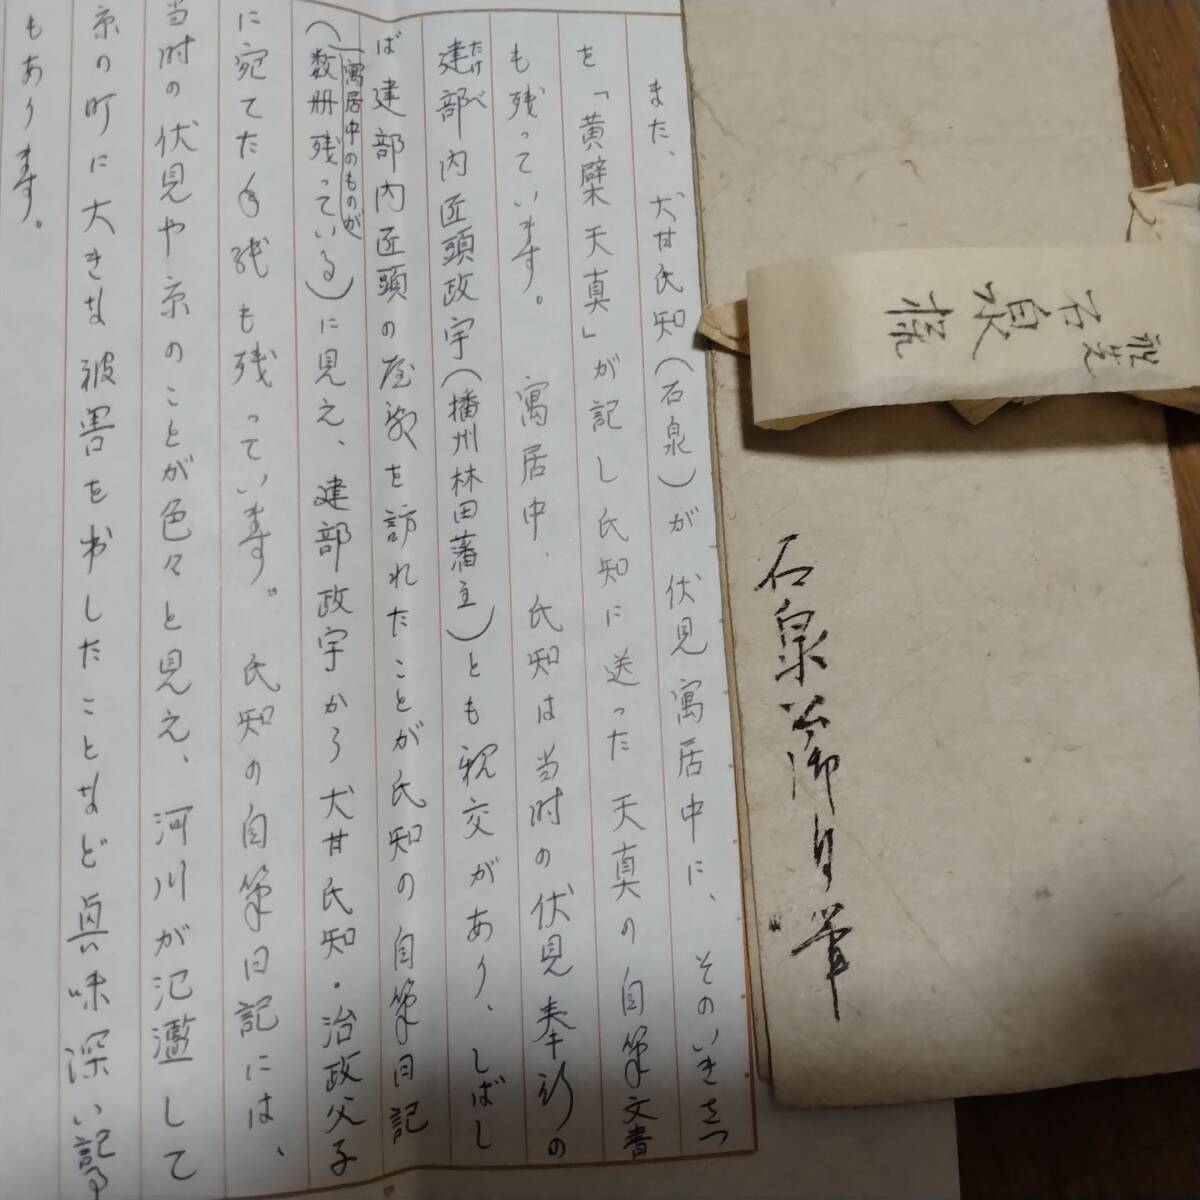 また、犬甘氏知(石泉)が伏見寓居中に、そのいきさつ
を「黄檗天真」が記し氏知に送った天真の自筆文書
も残っています。 寓居中、氏知は当時の伏見奉行の
建部内匠頭政宇(播州林田藩主)とも親交があり、しばし
たけべ
ば建部内匠頭の屋敷を訪れたことが氏知の自筆日記
(数冊残っている)に見え、建部政宇から犬甘氏知・治政父子
寓居中のものが
に宛てた手残も残っています。氏知の自筆日記には、
当時の伏見や京のことが色々と見え、河川が氾濫して
京の町に大きな被害を出したことなど興味深い記事
もあります。
石泉公御自筆